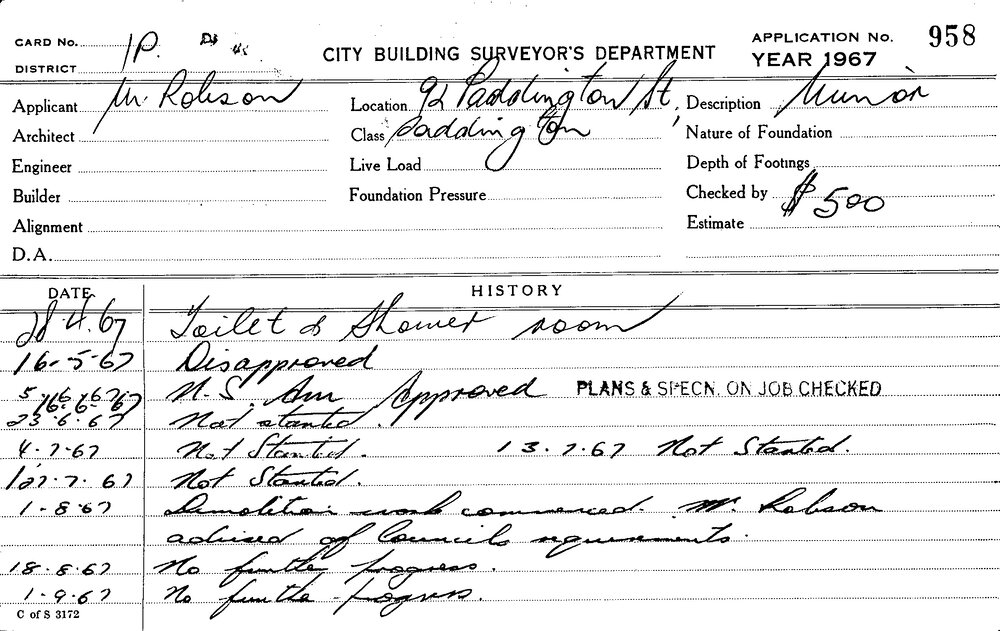 CARD No. 1P. CITY BUILDING SURVEYOR'S DEPARTMENT APPLICATION No. 958
DISTRICT YEAR 1967
Applicant Mr Robson Location 92 Paddington St, Description Minor
Architect Class Paddington Nature of Foundation
Engineer Live Load Depth of Footings
Builder Foundation Pressure Checked by $500
Alignment Estimate
D.A.
DATE HISTORY
28.4.67 Toilet & Shower room
16-5-67 Disapproved
5.6.67 N.S. Am Approved PLANS & SPECN. ON JOB CHECKED
16-6-67
23.6.67 Not started.
4-7-67 Not Started. 13.7.67 Not Started.
27.7.67 Not Started.
1-8-67 Demolition work commenced. Mr. Robson
advised of Councils requirements.
18.8.67 No further progress.
1-9-67 No further progress.
C of S 3172